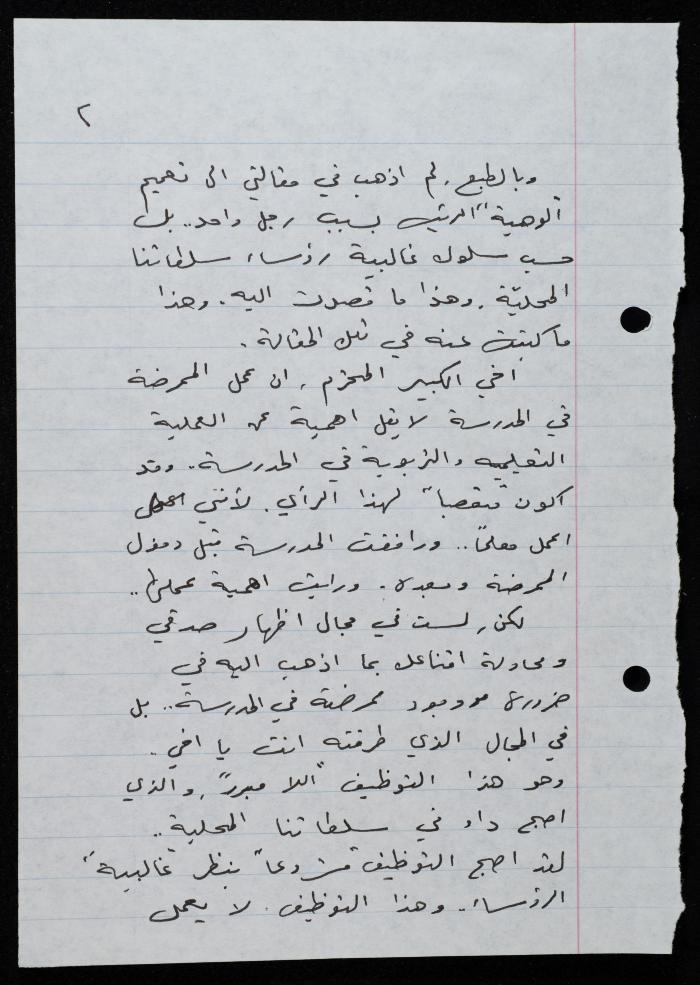 ٢
وبالطبع, لم اذهب في مقالتي الى تعميم
"ألوهية" الرئيس بسبب رجل واحد.. بل
حسب سلوك غالبية رؤساء سلطاتنا
المحليّة. وهذا ما قصدت اليه. وهذا
ما كتبت عنه في تلك المقالة.
اخي الكبير المحترم, ان عمل الممرضة
في المدرسة لا يقل اهمية عن العملية
التعليميه والتربوية في المدرسة. وقد
اكون "متعصبا" لهذا الرأي. لأنني
اعمل معلمًا.. ورافقت المدرسة قبل دخول
الممرضة وبعده. ورايت اهمية عملها..
لكن, لست في مجال اظهار صدقي
ومحاولة اقناعك بما اذهب اليه في
ضرورة وجود ممرضة في المدرسة.. بل
في المجال الذي طرقته انت يا اخي.
وهو هذا التوظيف "اللا مبرر", والذي
اصبح داء في سلطاتنا المحلية..
لقد اصبح التوظيف "مشروعا" بنظر "غالبية"
الرؤساء.. وهذا التوظيف. لا يعمل